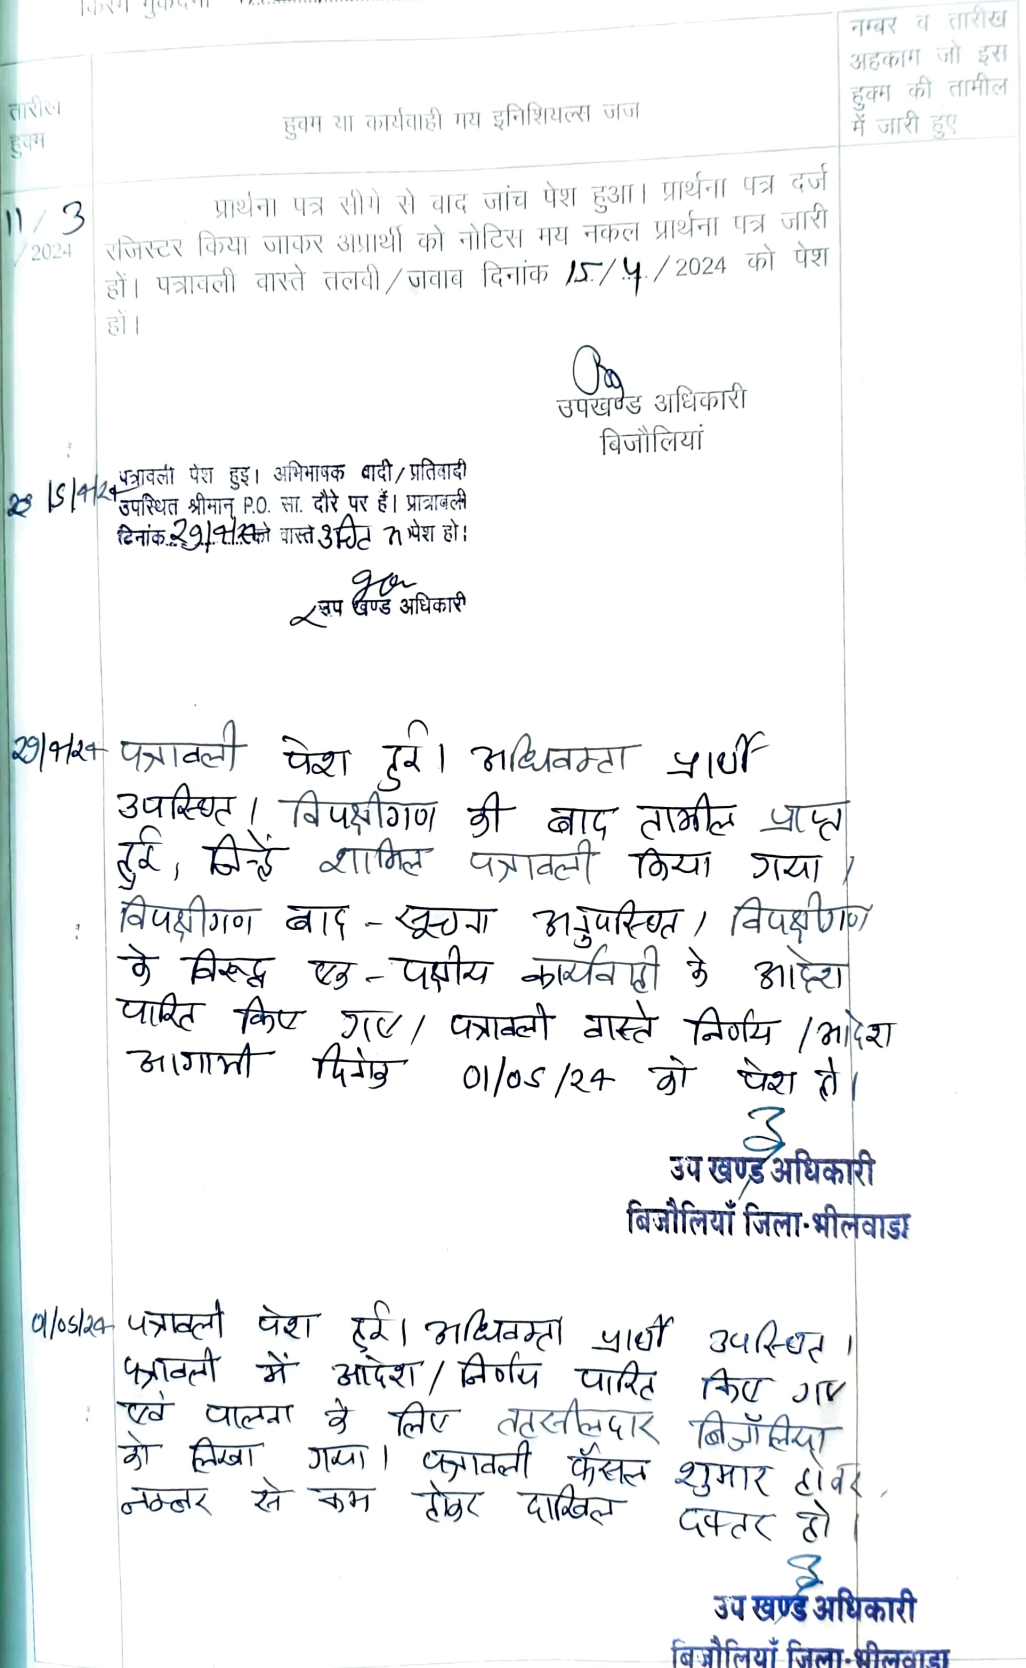 किस्म मुकदमा
तारीख हुक्म
हुक्म या कार्यवाही मय इनिशियल्स जज
नम्बर व तारीख
अहकाम जो इस
हुक्म की तामील
में जारी हुए
11/3/2024
प्रार्थना पत्र सीगे से बाद जांच पेश हुआ। प्रार्थना पत्र दर्ज
रजिस्टर किया जाकर अप्रार्थी को नोटिस मय नकल प्रार्थना पत्र जारी
हों। पत्रावली वास्ते तलवी/जवाब दिनांक 15/4/2024 को पेश
हों।
उपखण्ड अधिकारी
बिजौलियां
15/4/24
पत्रावली पेश हुइ। अभिभाषक वादी/प्रतिवादी
उपस्थित श्रीमान् P.O. सा. दौरे पर हैं। प्रात्रावली
दिनांक 29/4/24 को वास्ते पेश हो।
उप खण्ड अधिकारी
29/4/24 पत्रावली पेश हुई। अधिवक्ता प्रार्थी
उपस्थित। विपक्षीगण की बाद तामील प्राप्त
हुई, जिन्हें शामिल पत्रावली किया गया।
विपक्षीगण बाद - सूचना अनुपस्थित। विपक्षीगण
के विरूद्ध एक - पक्षीय कार्यवाही के आदेश
पारित किए गए। पत्रावली वास्ते निर्णय / आदेश
आगामी दिनांक 01/05/24 को पेश हो।
उप खण्ड अधिकारी
बिजौलियाँ जिला-भीलवाडा
01/05/24 पत्रावली पेश हुई। अधिवक्ता प्रार्थी उपस्थित।
पत्रावली में आदेश/निर्णय पारित किए गए
एवं पालना के लिए तहसीलदार बिजौलिया
को लिखा गया। पत्रावली फैसल शुमार होकर
नम्बर से कम होकर दाखिल दफ्तर हो।
उप खण्ड अधिकारी
बिजौलियाँ जिला-भीलवाडा